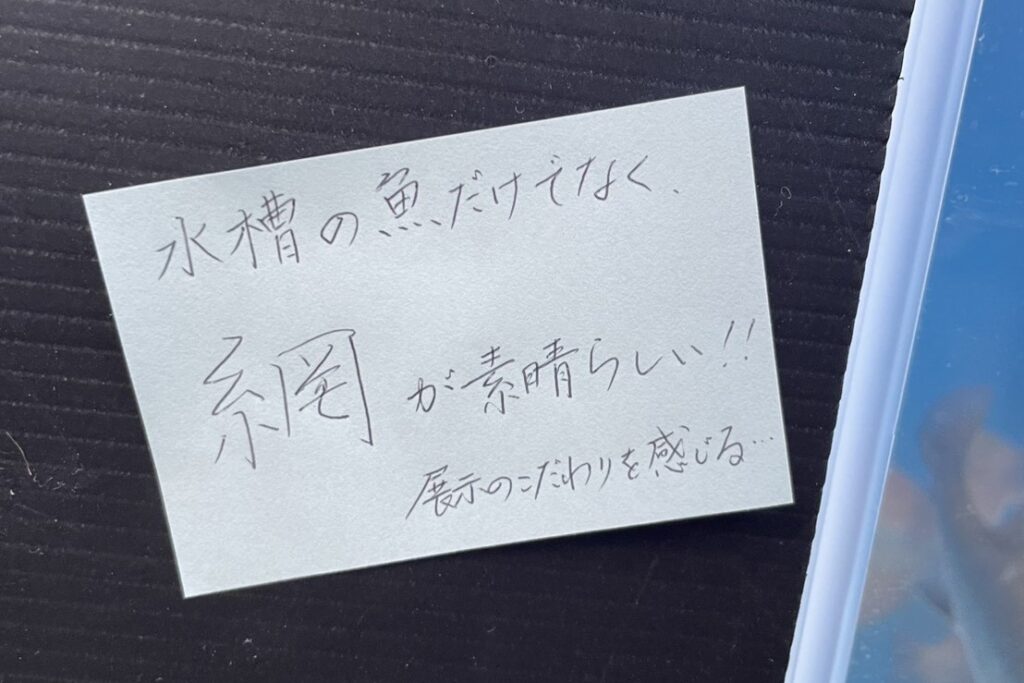 水槽の魚だけでなく、
網が素晴らしい!!
展示のこだわりを感じる…